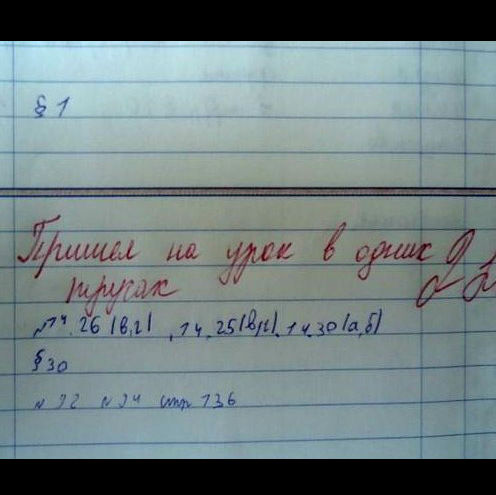 § 1
Пришел на урок в одних 2 2
трусах
№ 14.26 (в,г), 14.25(в,г), 14.30(а,б)
§ 30
№ 92 № 94 стр 136